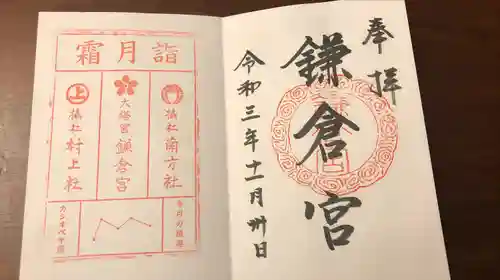 奉拝
鎌倉宮
令和三年十一月卅日
霜月詣
摂社南方社
大塔宮鎌倉宮
上
摂社村上社
今月の星座
カシオペヤ座